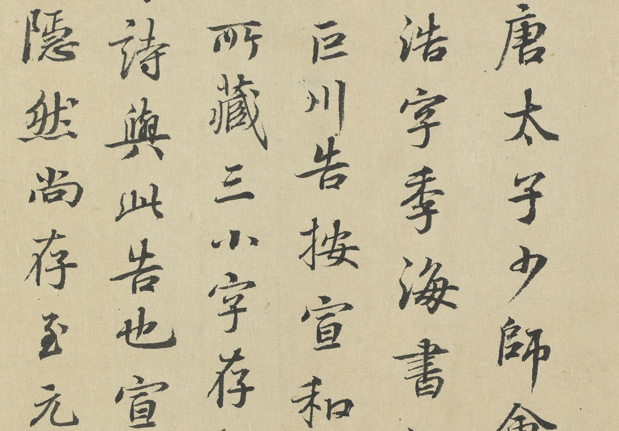 唐太子少師會
浩字季海書
巨川告按宣和
所藏三小字存
詩與此告也宣
隱然尚存至元